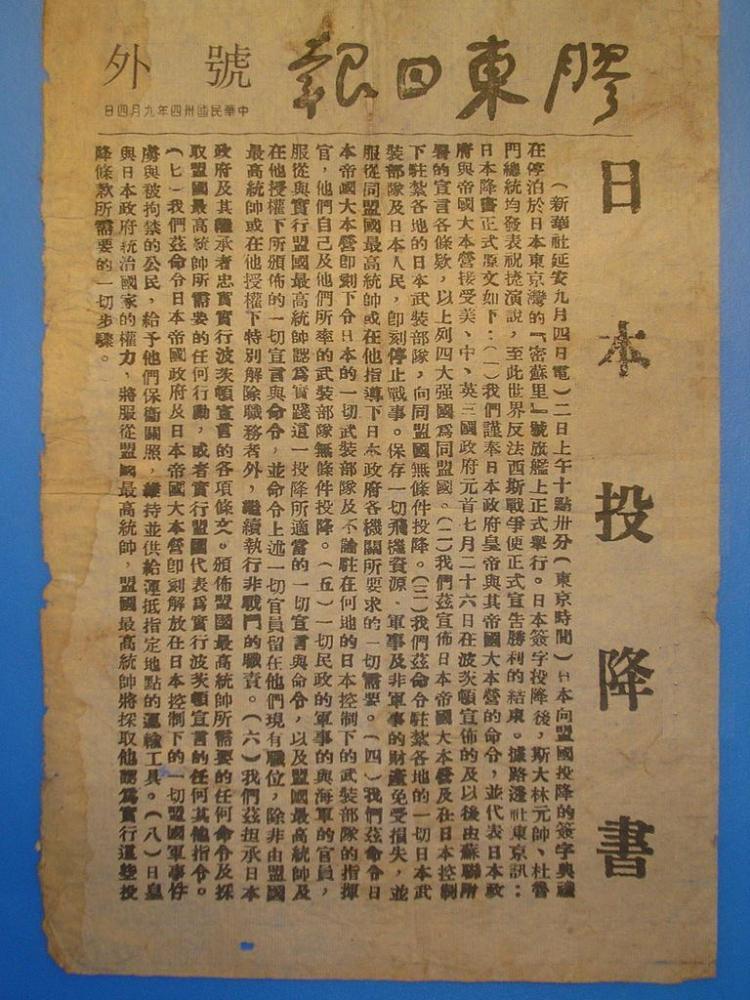 膠東日報
號外
中華民國卅四年九月四日
日本投降書
(新華社延安九月四日電)二日上午十點卅分(東京時間)日本向盟國投降的簽字典禮
在停泊於日本東京灣的『密蘇里』號旗艦上正式舉行。日本簽字投降後,斯大林元帥、杜魯
門總統均發表祝捷演說,至此世界反法西斯戰爭便正式宣告勝利的結束。據路透社東京訊:
日本降書正式原文如下:(一)我們謹奉日本政府皇帝與其帝國大本營的命令,並代表日本政
府與帝國大本營接受美、中、英三國政府元首七月二十六日在波茨頓宣佈的及以後由蘇聯所
署的宣言各條欵,以上列四大强國爲同盟國。(二)我們茲宣佈日本帝國大本營及在日本控制
下駐紮各地的日本武裝部隊,向同盟國無條件投降。(三)我們茲命令駐紮各地的一切日本武
裝部隊及日本人民,卽刻停止戰事。保存一切飛機資源、軍事及非軍事的財產免受損失,並
服從同盟國最高統帥或在他指導下日本政府各機關所要求的一切需要。(四)我們茲命令日
本帝國大本營卽刻下令日本的一切武裝部隊及不論駐在何地的日本控制下的武裝部隊的指揮
官,他們自己及他們所率的武裝部隊無條件投降。(五)一切民政的軍事的與海軍的官員,
服從與實行盟國最高統帥認爲實踐這一投降所適當的一切宣言與命令,以及盟國最高統帥及
在他授權下所頒佈的一切宣言與命令,並命令上述一切官員留在他們現有職位,除非由盟國
最高統帥或在他授權下特別解除職務者外,繼續執行非戰鬥的職責。(六)我們茲担承日本
政府及其繼承者忠實實行波茨頓宣言的各項條文。頒佈盟國最高統帥所需要的任何命令及採
取盟國最高統帥所需要的任何行動,或者實行盟國代表爲實行波茨頓宣言的任何其他指令。
(七)我們茲命令日本帝國政府及日本帝國大本營卽刻解放在日本控制下的一切盟國軍事俘
虜與被拘禁的公民,給予他們保衛關照,維持並供給運抵指定地點的運輸工具。(八)日皇
與日本政府統治國家的權力,將服從盟國最高統帥,盟國最高統帥將採取他認爲實行這些投
降條欵所需要的一切步驟。